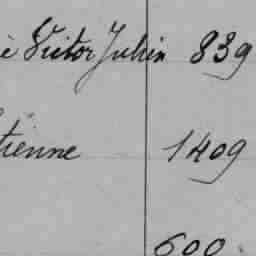 è Victor Julien 839
tienne 1409
600